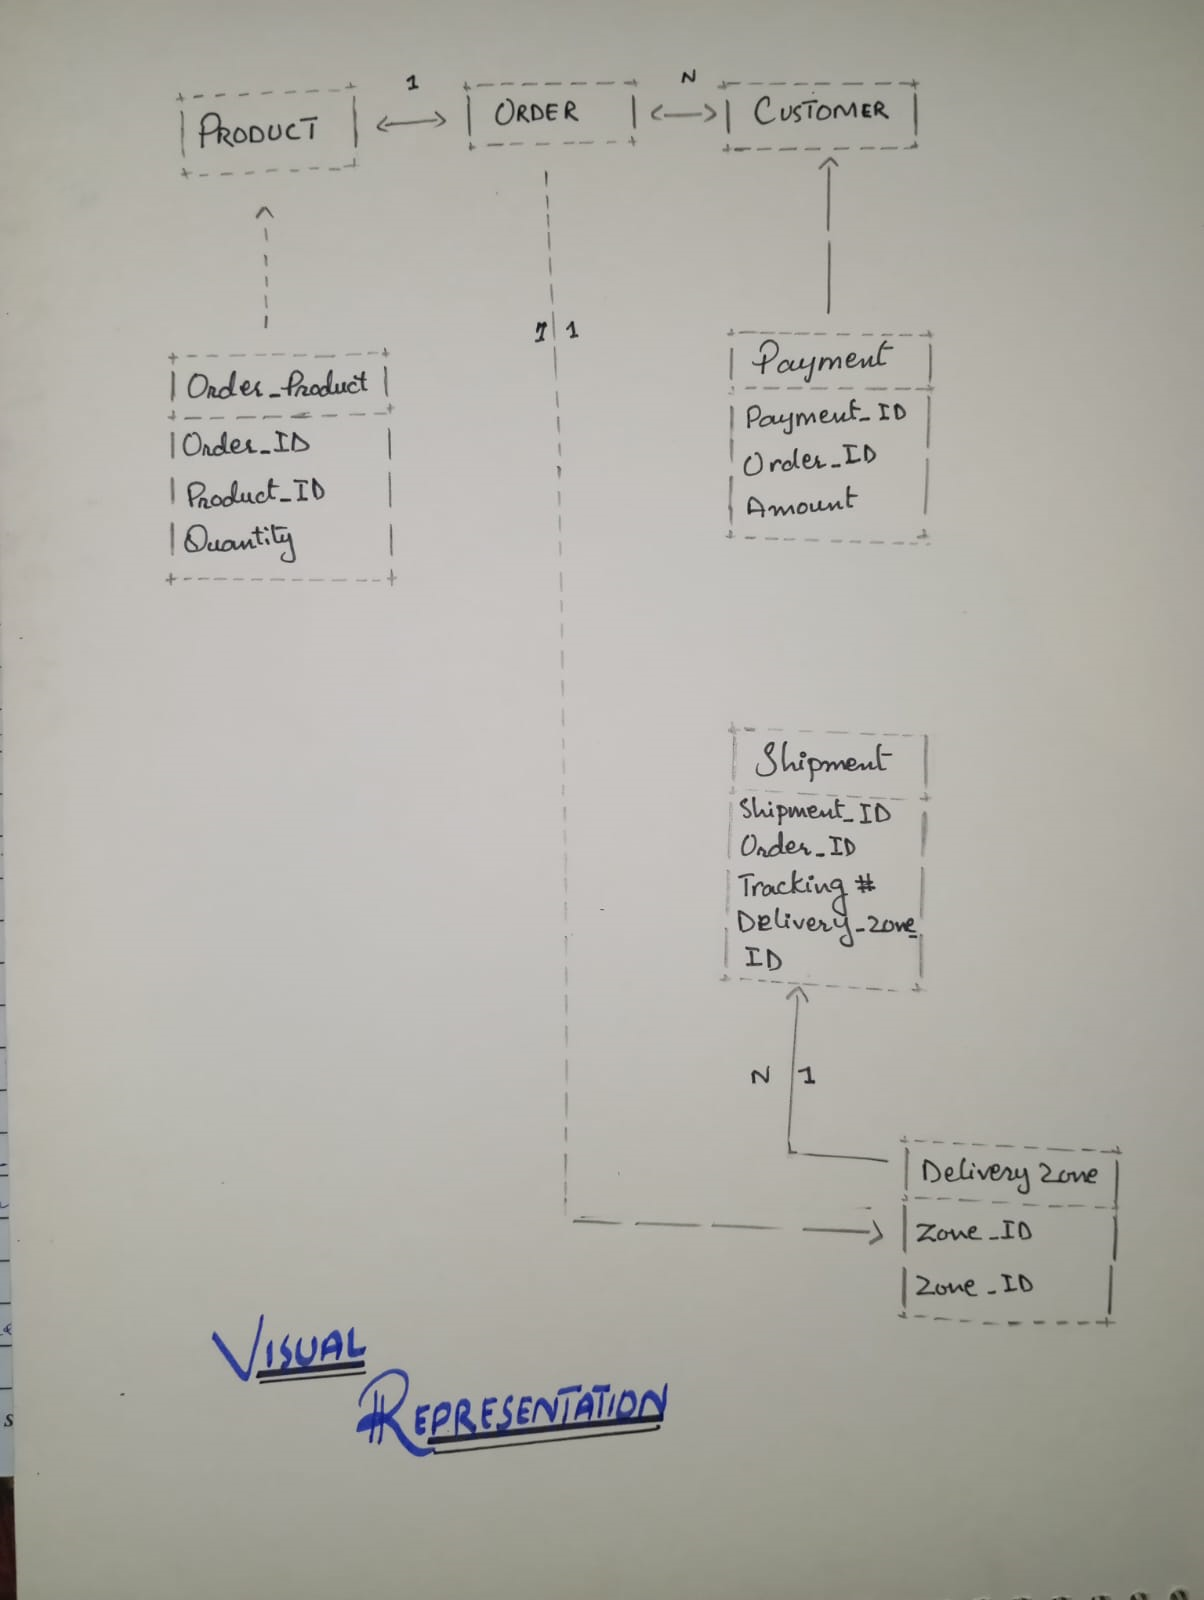 1
N
PRODUCT
ORDER
CUSTOMER
1 1
Order_Product
Order_ID
Product_ID
Quantity
Payment
Payment_ID
Order_ID
Amount
Shipment
Shipment_ID
Order_ID
Tracking #
Delivery_zone
ID
N 1
Delivery Zone
Zone_ID
Zone_ID
VISUAL
REPRESENTATION